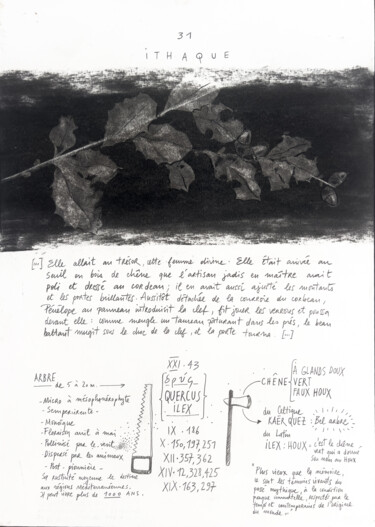 31
ITHAQUE
[...] Elle allait au trésor, cette femme divine. Elle était arrivée au
seuil en bois de chêne que l'artisan jadis en maître avait
poli et dressé au cordeau; il en avait aussi ajusté les montants
et les portes brillantes. Aussitôt détachée de la courroie du corbeau,
Pénélope au panneau introduisit la clef, fit jouer les verrous et poussa
devant elle: comme meugle un taureau pâturant dans les prés, le beau
battant mugit sous le choc de la clef, et la porte tourna. [...]
XXI. 43
δρῦς
QUERCUS
ILEX
IX. 186
X. 150, 197, 251
XII. 357, 362
XIV. 12, 328, 425
XIX. 163, 297
ARBRE
de 5 à 20 m.
- Micro à mésophanérophyte
- Sempervirente
- Monoïque
- Floraison avril à mai
- Pollinisé par le vent
- Dispersé par les animaux
- Post-pionnière
Sa rusticité moyenne le destine
aux régions méditerranéennes.
Il peut vivre plus de 1000 ANS.
CHÊNE
À GLANDS DOUX
VERT
FAUX HOUX
du Celtique
KAER QUEZ: Bel arbre
du Latin
ILEX: HOUX.
c'est le chêne
vert qui a donné
son nom au Houx
"Plus vieux que la mémoire,
ce sont les témoins
passé mythique, à la condition
presque immortelle, respectés par le
temps et contemporains de l'origine
du monde."